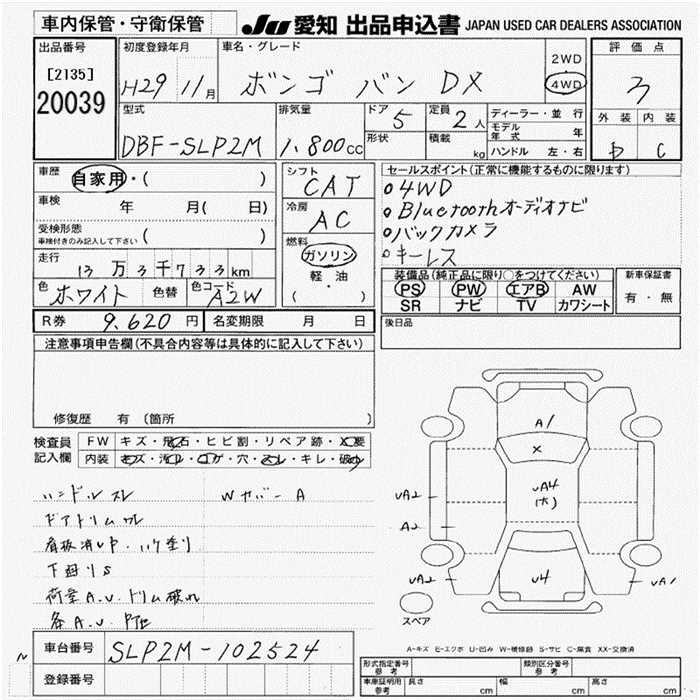 車内保管・守衛保管
JU 愛知 出品申込書 JAPAN USED CAR DEALERS ASSOCIATION
出品番号
[2135]
20039
初度登録年月
H29 11月
車名・グレード
ボンゴ バン DX
2WD
4WD
評価点
3
外装 内装
D C
型式
DBF-SLP2M
排気量
1.800cc
ドア 5
形状
定員 2人
積載 kg
ディーラー・並行
モデル年式 年
ハンドル 左・右
車歴 自家用・( )
車検 年 月( 日)
受検形態
車検付きのみ記入して下さい ( )
走行 13万3千733km
色 ホワイト 色替 色コード A2W
シフト
CAT
冷房
AC
燃料
ガソリン
軽・油
( )
セールスポイント(正常に機能するものに限ります)
○4WD
○Bluetoothオーディオナビ
○バックカメラ
○キーレス
装備品(純正品に限り○をつけてください)
PS PW エアB AW
SR ナビ TV カワシート
新車保証書
有・無
R券 9,620円 名変期限 月 日
後日品
注意事項申告欄(不具合内容等は具体的に記入して下さい)
修復歴 有 (箇所 )
検査員記入欄
FW キズ・飛石・ヒビ割・リペア跡・X要
内装 キズ・汚れ・コゲ・穴・スレ・キレ・破れ
ハンドルスレ Wカバー A
ドアトリムワレ
下廻りS
荷室A.U.トリム破れ
A1
X
UA4
(ホ)
U4
UA2
A2
UA2
UA1
スペア
A-キズ E-エクボ U-凹み W-補修跡 S-サビ C-腐食 XX-交換済
車台番号 SLP2M-102524
N
登録番号
形式指定番号 参考
類別区分番号 参考
車庫証明用 参考
長さ cm 幅 cm 高さ cm